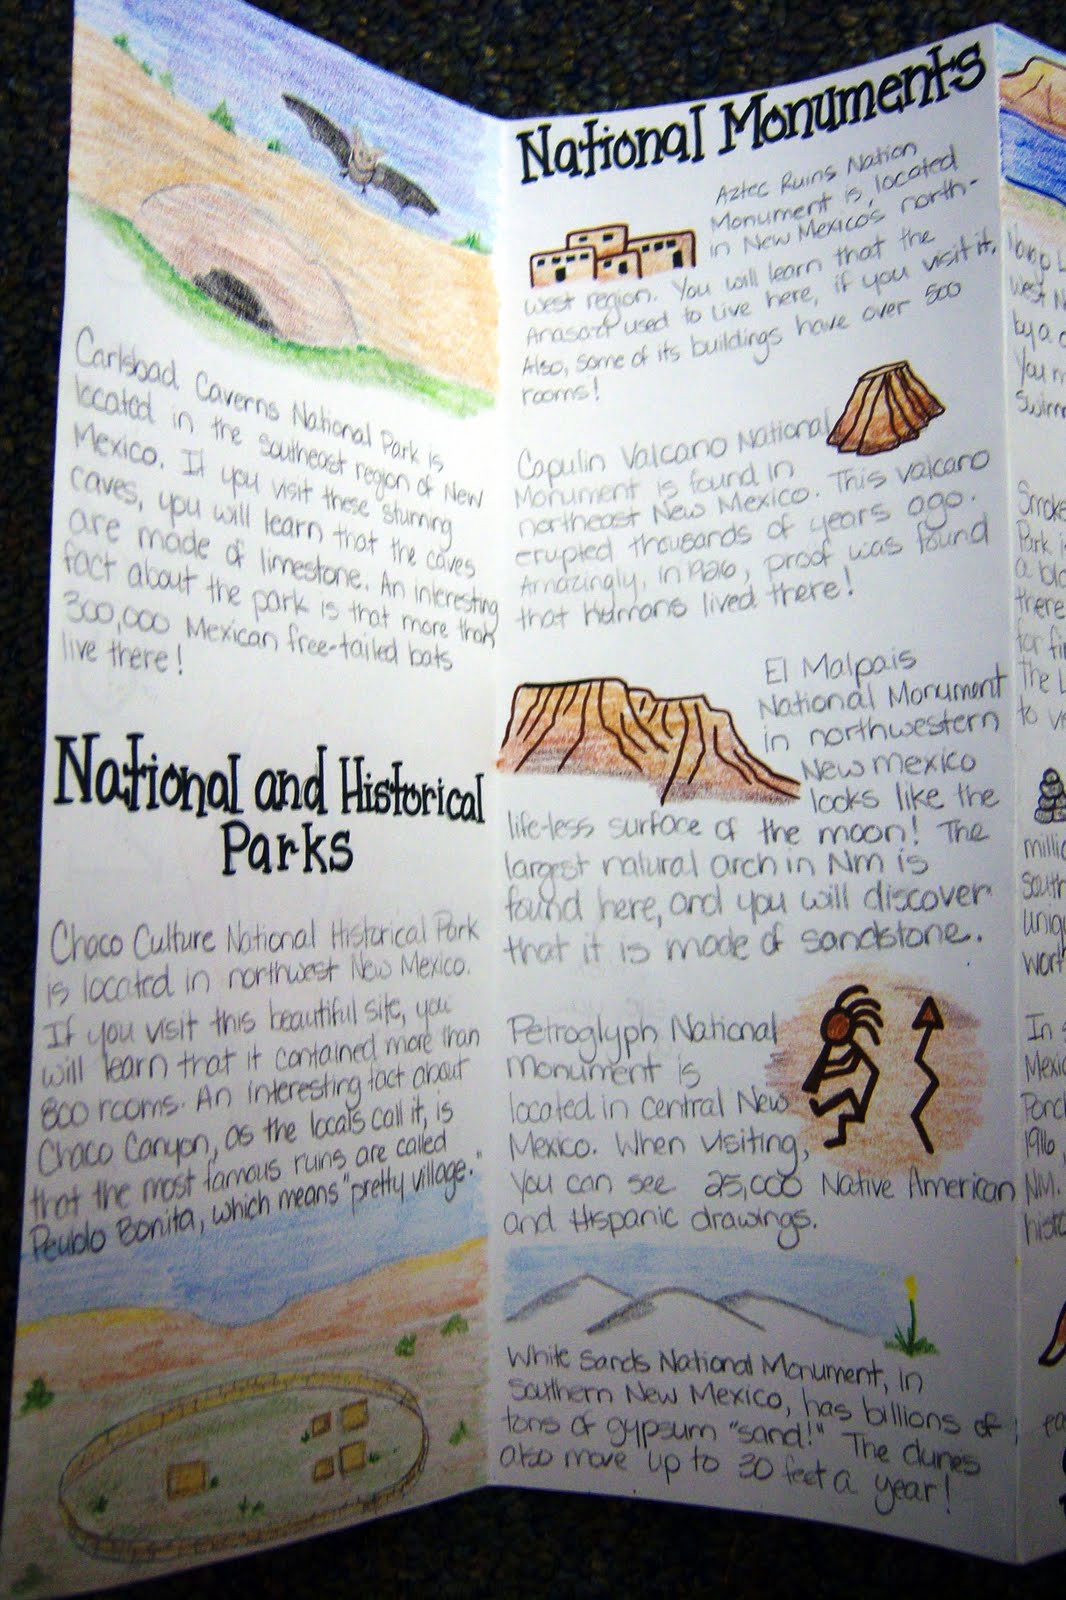 Carlsbad Caverns National Park is
located in the southeast region of New
Mexico. If you visit these stunning
caves, you will learn that the caves
are made of limestone. An interesting
fact about the park is that more than
300,000 Mexican free-tailed bats
live there!
National and Historical
Parks
Chaco Culture National Historical Park
is located in northwest New Mexico.
If you visit this beautiful site, you
will learn that it contained more than
800 rooms. An interesting fact about
Chaco Canyon, as the locals call it, is
that the most famous ruins are called
Peublo Bonita, which means "pretty village."
National Monuments
Aztec Ruins Nation
Monument is located
in New Mexico's north-
west region. You will learn that the
Anasazi used to live here, if you visit it.
Also, some of its buildings have over 500
rooms!
Capulin Valcano National
Monument is found in
northeast New Mexico. This valcano
erupted thousands of years ago.
Amazingly, in 1926, proof was found
that humans lived there!
El Malpais
National Monument
in northwestern
New mexico
looks like the
life-less surface of the moon! The
largest natural arch in Nm is
found here, and you will discover
that it is made of sandstone.
Petroglyph National
Monument is
located in central New
Mexico. When visiting,
you can see 25,000 Native American
and Hispanic drawings.
White Sands National Monument, in
Southern New Mexico, has billions of
tons of gypsum "sand!" The dunes
also move up to 30 feet a year!
West N
by a
You m
Swimm
Smoke
Park i
there
for fi
the L
to vi
millio
south
uniq
wort
In s
Mexic
Porch
1916,
NM.
histo
ea